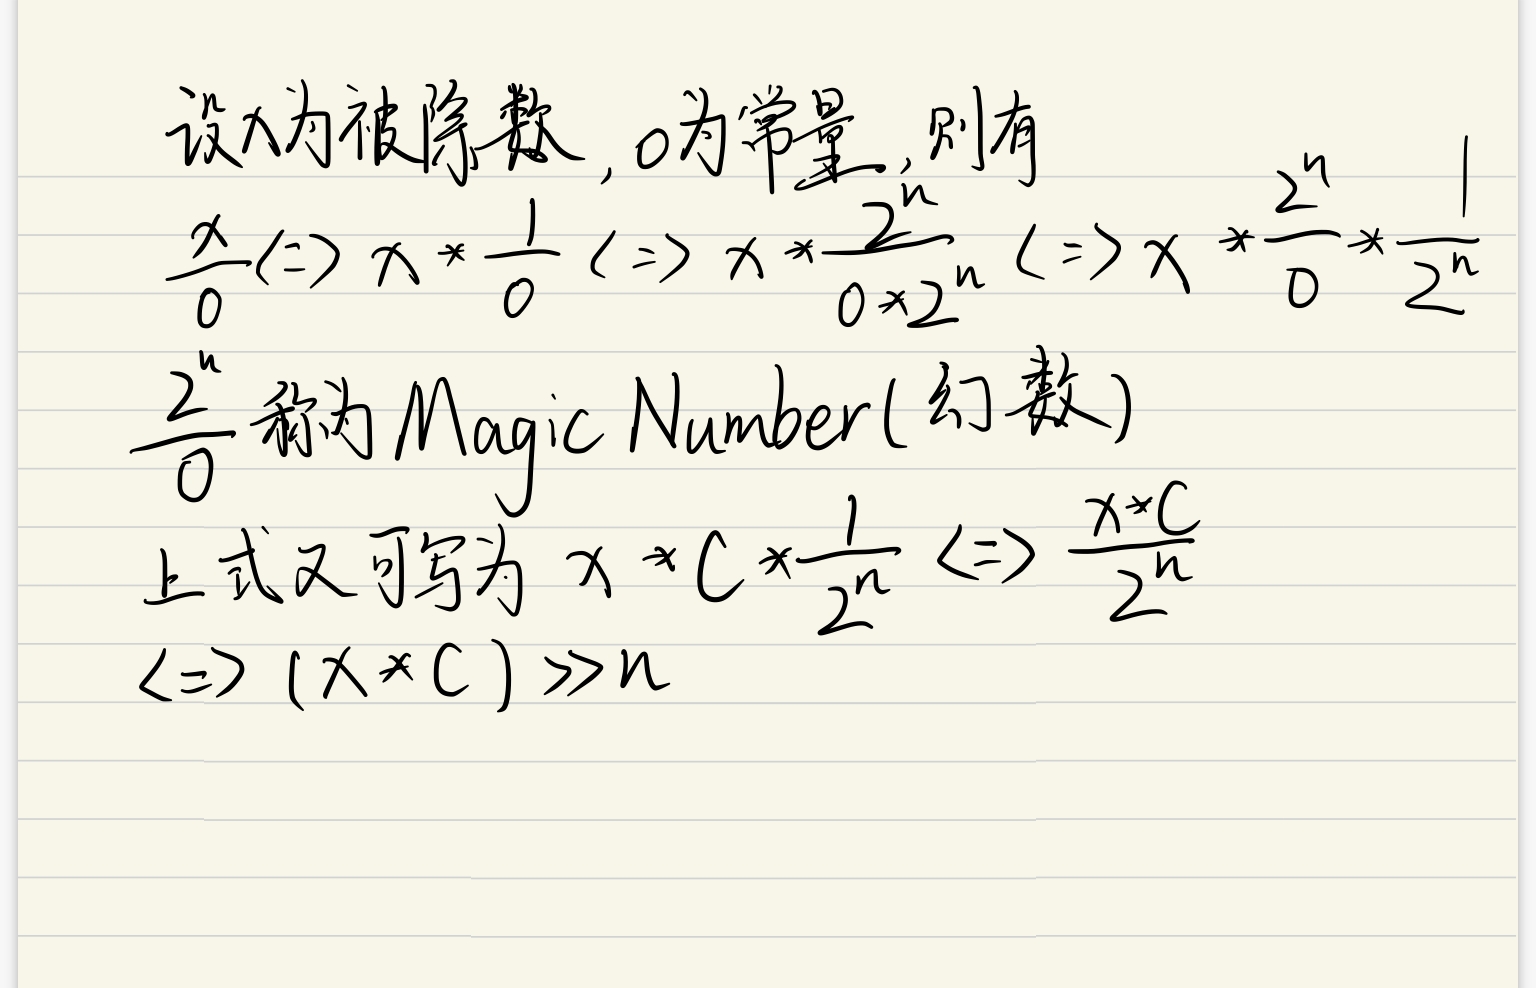 设x为被除数,o为常量,则有
x/o <=> x * 1/o <=> x * 2^n/(o*2^n) <=> x * 2^n/o * 1/2^n
2^n/o 称为Magic Number(幻数)
上式又可写为 x * C * 1/2^n <=> x*C/2^n
<=> (x*C) >>n